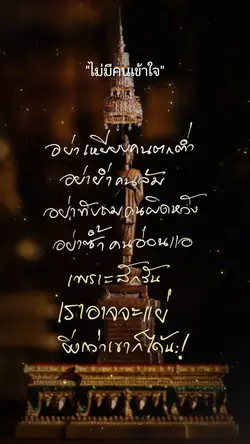 "ไม่มีคนเข้าใจ"
อย่าเหยียบคนตกต่ำ
อย่าย่ำคนล้ม
อย่าทับถมคนผิดหวัง
อย่าซ้ำคนอ่อนแอ
เพราะสักวัน
เราอาจจะแย่
ยิ่งกว่าเขาก็ได้นะ!